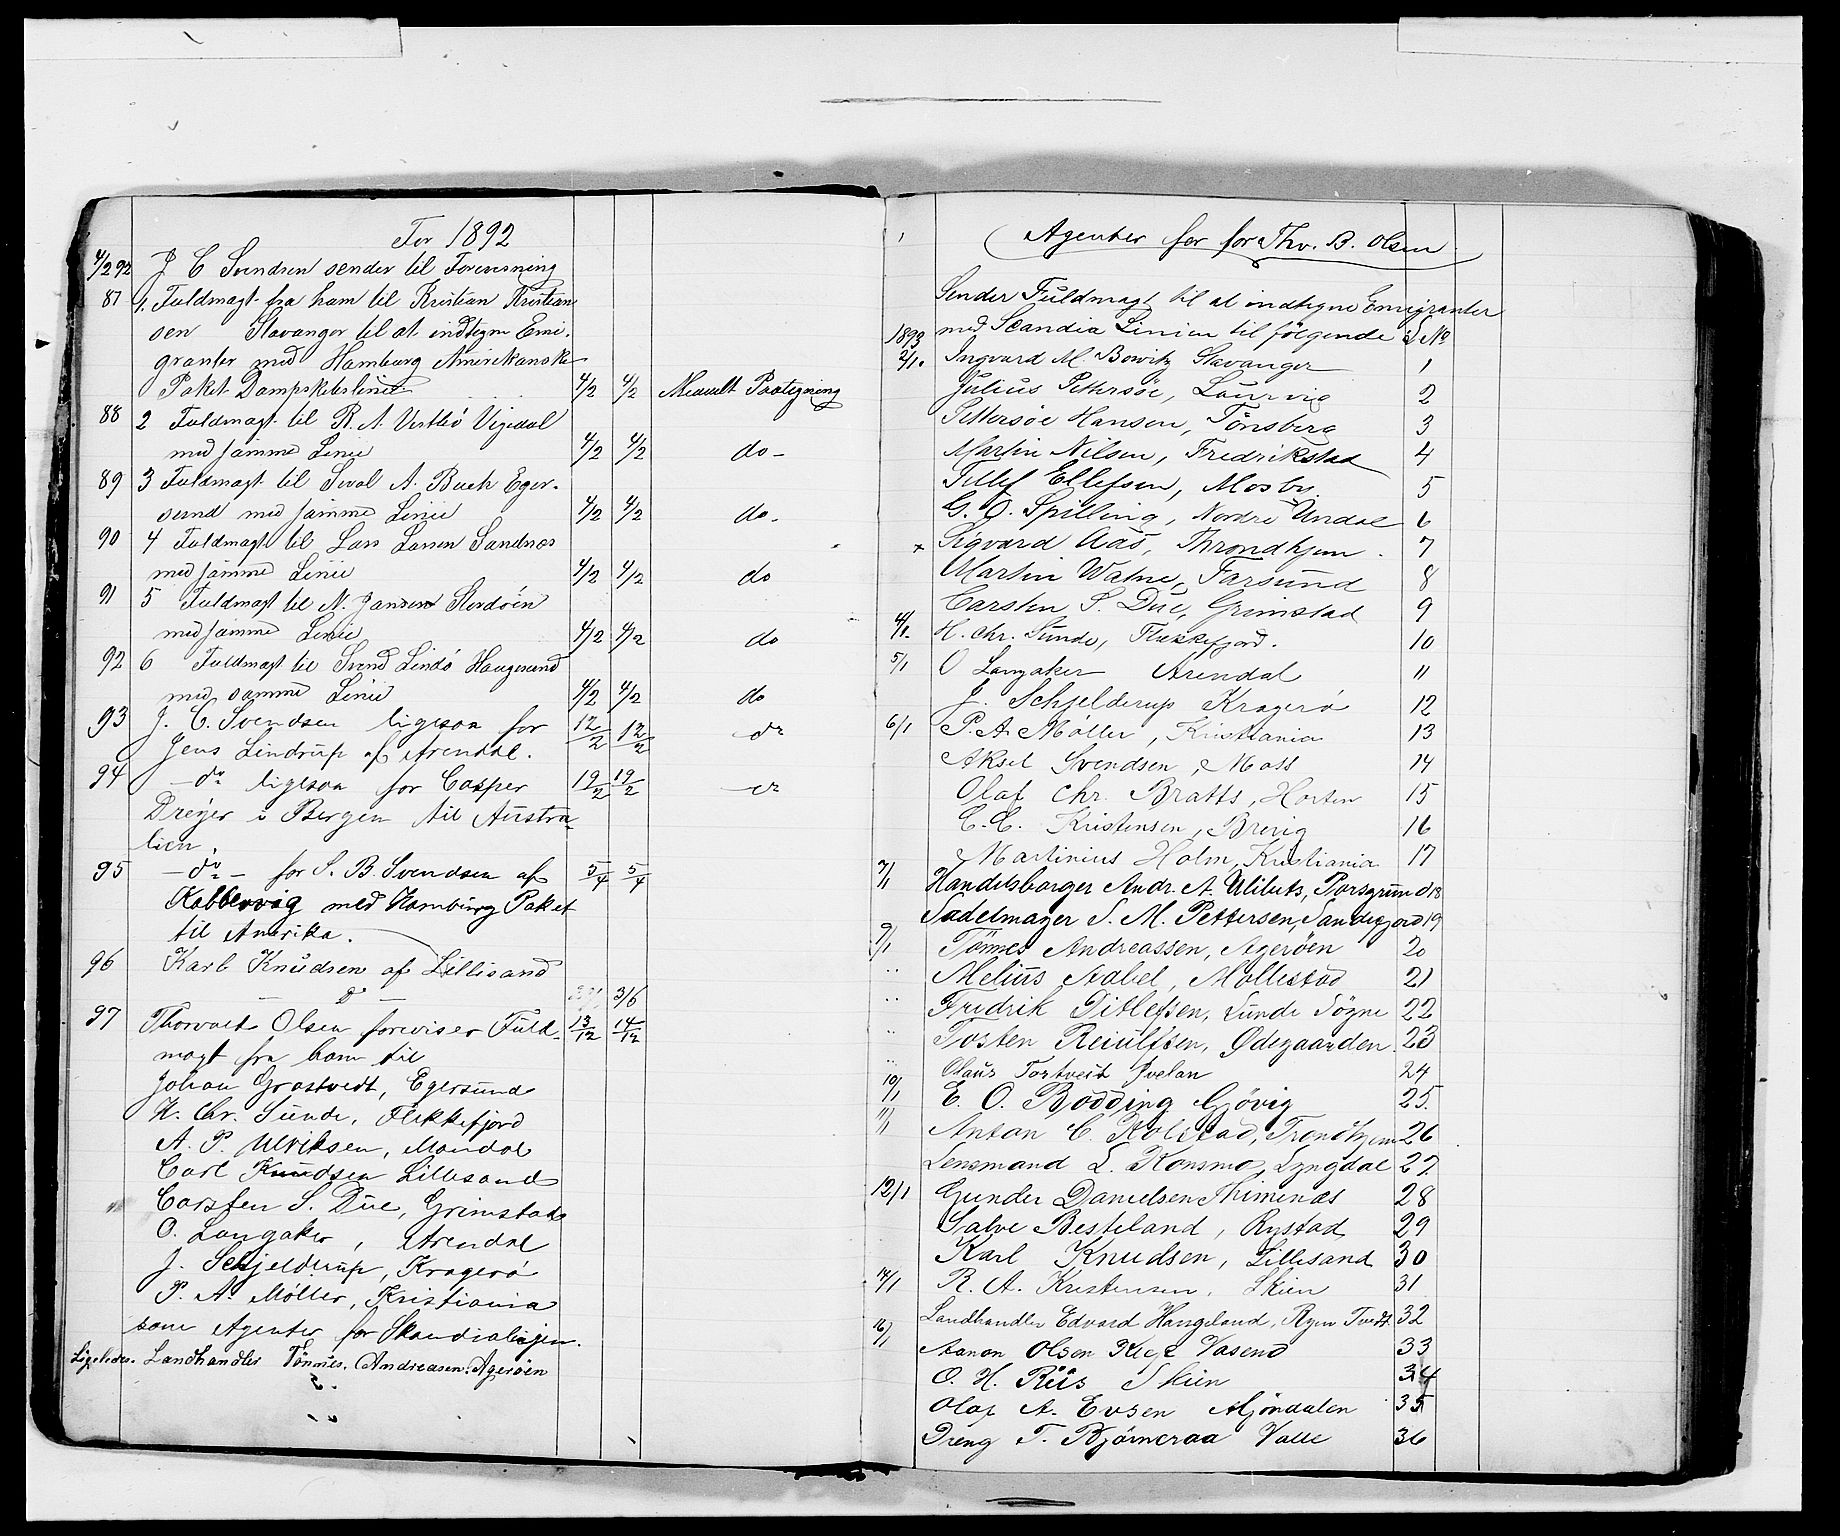 For 1892
4/2 92 J C Svendsen sender til Forevisning
87 1. Fuldmagt fra ham til Kristian Kristian
sen Stavanger til at indtegne Emi-
granter med Hamburg Amerikanske
Paket Dampskibslinie 4/2 4/2 Paategning
88 2 Fuldmagt til R. A. Vestbö Vigedal
med samme Linie 4/2 4/2 do-
89 3 Fuldmagt til Sival A. Buch Eger-
sund med samme Linie 4/2 4/2 do-
90 4 Fuldmagt til Lars Larsen Sandnes
med samme Linie 4/2 4/2 do
91 5 Fuldmagt til N. Jansen Stordöen
med samme Linie 4/2 4/2 do
92 6 Fuldmagt til Svend Lindö Haugesund
med samme Linie 4/2 4/2 do
93 J. C. Svendsen ligesaa for 12/2 12/2 do
Jens Lindrup af Arendal.
94 -do ligesaa for Casper 19/2 19/2 do
Dreyer i Bergen til Austra-
lien.
95 -do- for S. B. Svendsen af 5/4 5/4
Kobbervig med Hamburg Paket
til Amerika.
96 Karl Knudsen af Lillisand
— do — 3/6
97 Thorvald Olsen foreviser Fuld- 13/12 14/12
magt fra ham til
Johan Grastvedt, Egersund
H. Chr. Sunde, Flekkefjord
A. P. Ulriksen, Mandal
Carl Knudsen Lillesand
Carsten S. Due, Grimstad
O. Langaker, Arendal
J. Schjelderup, Kragerö
P. A. Möller, Kristiania
som Agenter for Skandialinjen.
Ligeledes. Landhandler Tönnes. Andreasen. Ageröen
Agenter for for Thv. B. Olsen
Sender Fuldmagt til at indtegne Emigranter
1893 med Scandia Linien til fölgende: L No
2/1. Ingvard M. Bowitz Stavanger 1
Julius Pettersöe, Laurvig 2
Pettersöe Hansen, Tönsberg 3
Martin Nilsen, Fredrikstad 4
Tellef Ellefsen, Mosby. 5
G. O. Spilling, Nordre Undal 6
x Sigvard Aas, Throndhjem. 7
Martin Watne, Farsund 8
Carsten S. Due, Grimstad 9
4/1. H. Chr. Sunde, Flekkefjord. 10
5/1 O Langaker Arendal 11
J. Schjelderup Kragerö 12
6/1 P. A. Möller, Kristiania 13
Aksel Svendsen, Moss 14
Olaf Chr. Bratts, Horten 15
C. C. Kristensen, Brevig 16
Martinius Holm, Kristiania 17
7/1 Handelsborger Andr. A. Porsgrund 18
Sadelmager S. M. Pettersen, Sandefjord 19
9/1 Tönnes Andreassen, Ageröen 20
" Melius Aabel, Mollestad 21
" Fredrik Ditlefsen, Lunde Sögne 22
" Tosten Reiulfsen, Ødegaarden. 23
" Olaus Tortveit Ivelan 24
10/1 E. O. Bödding Gjövig 25
11/1 Anton C. Rolstad, Trondhjem 26
Lensmand L. Konsmo, Lyngdal 27
12/1 Gunder Danielsen Thimenæs 28
Salve Besteland, Rystad 29
Karl Knudsen, Lillesand 30
14/1 R. A. Kristensen, Skien 31
Landhandler Edvard Haugeland, Tvedt. 32
16/1 Aanon Olsen Vasend 33
O. H. Riis Skien 34
Olaf A. Evsen Mjöndalen 35
Dreng T. Björneraa Valle 36